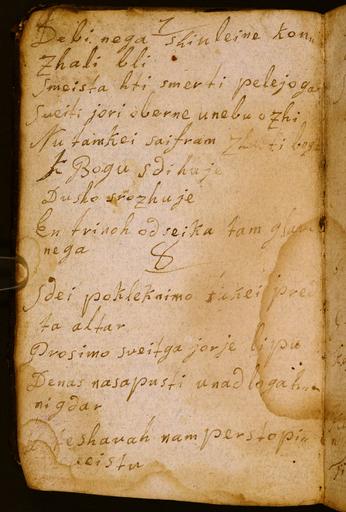 Da bi nega 7 shiuleine kon
Zhali bli
Smeista hti smerti pelejoga
Sveiti jori oberne unebu ozhi
Nu tamkei saifram
K Bogu sdihuje
Dusho srozhuje
En trinoh odseika tam
nega
8
Sdei pokleknimo tukei pred
ta altar
Prosimo sveitga jorje lipu
De nas nasapusti unadlogah
nigdar
teshauah nam perstopi
veistu